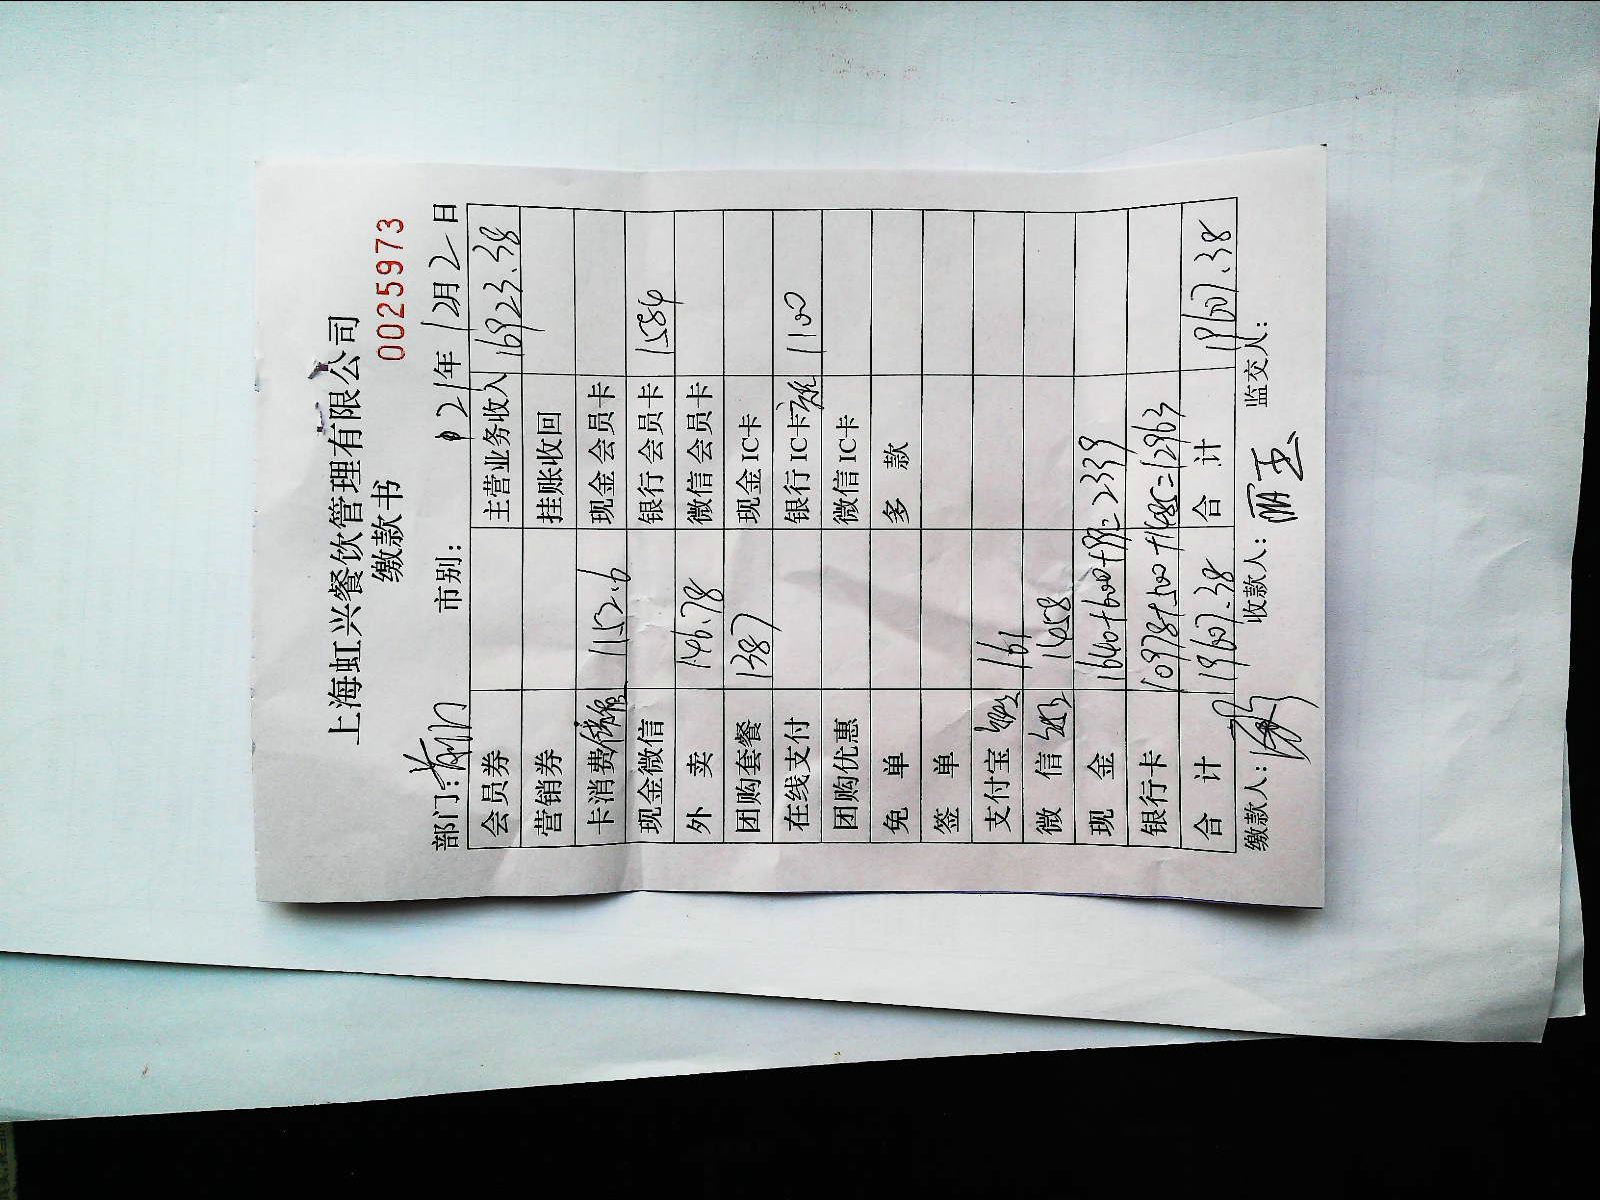 上海虹兴餐饮管理有限公司
缴款书 0025973
部门: 市别: 21年12月2日
会员券 主营业务收入 16923.38
营销券 挂账收回
卡消费 1152.6 现金会员卡
现金微信 银行会员卡 1584
外卖 146.78 微信会员卡
团购套餐 1387 现金IC卡
在线支付 银行IC卡 1100
团购优惠 微信IC卡
免单 多款
签单
支付宝 161
微信 1458
现金 1640+600+99=2339
银行卡 10978+500+1485=12963
合计 19607.38 合计 19607.38
缴款人: 收款人: 丽玉 监交人: